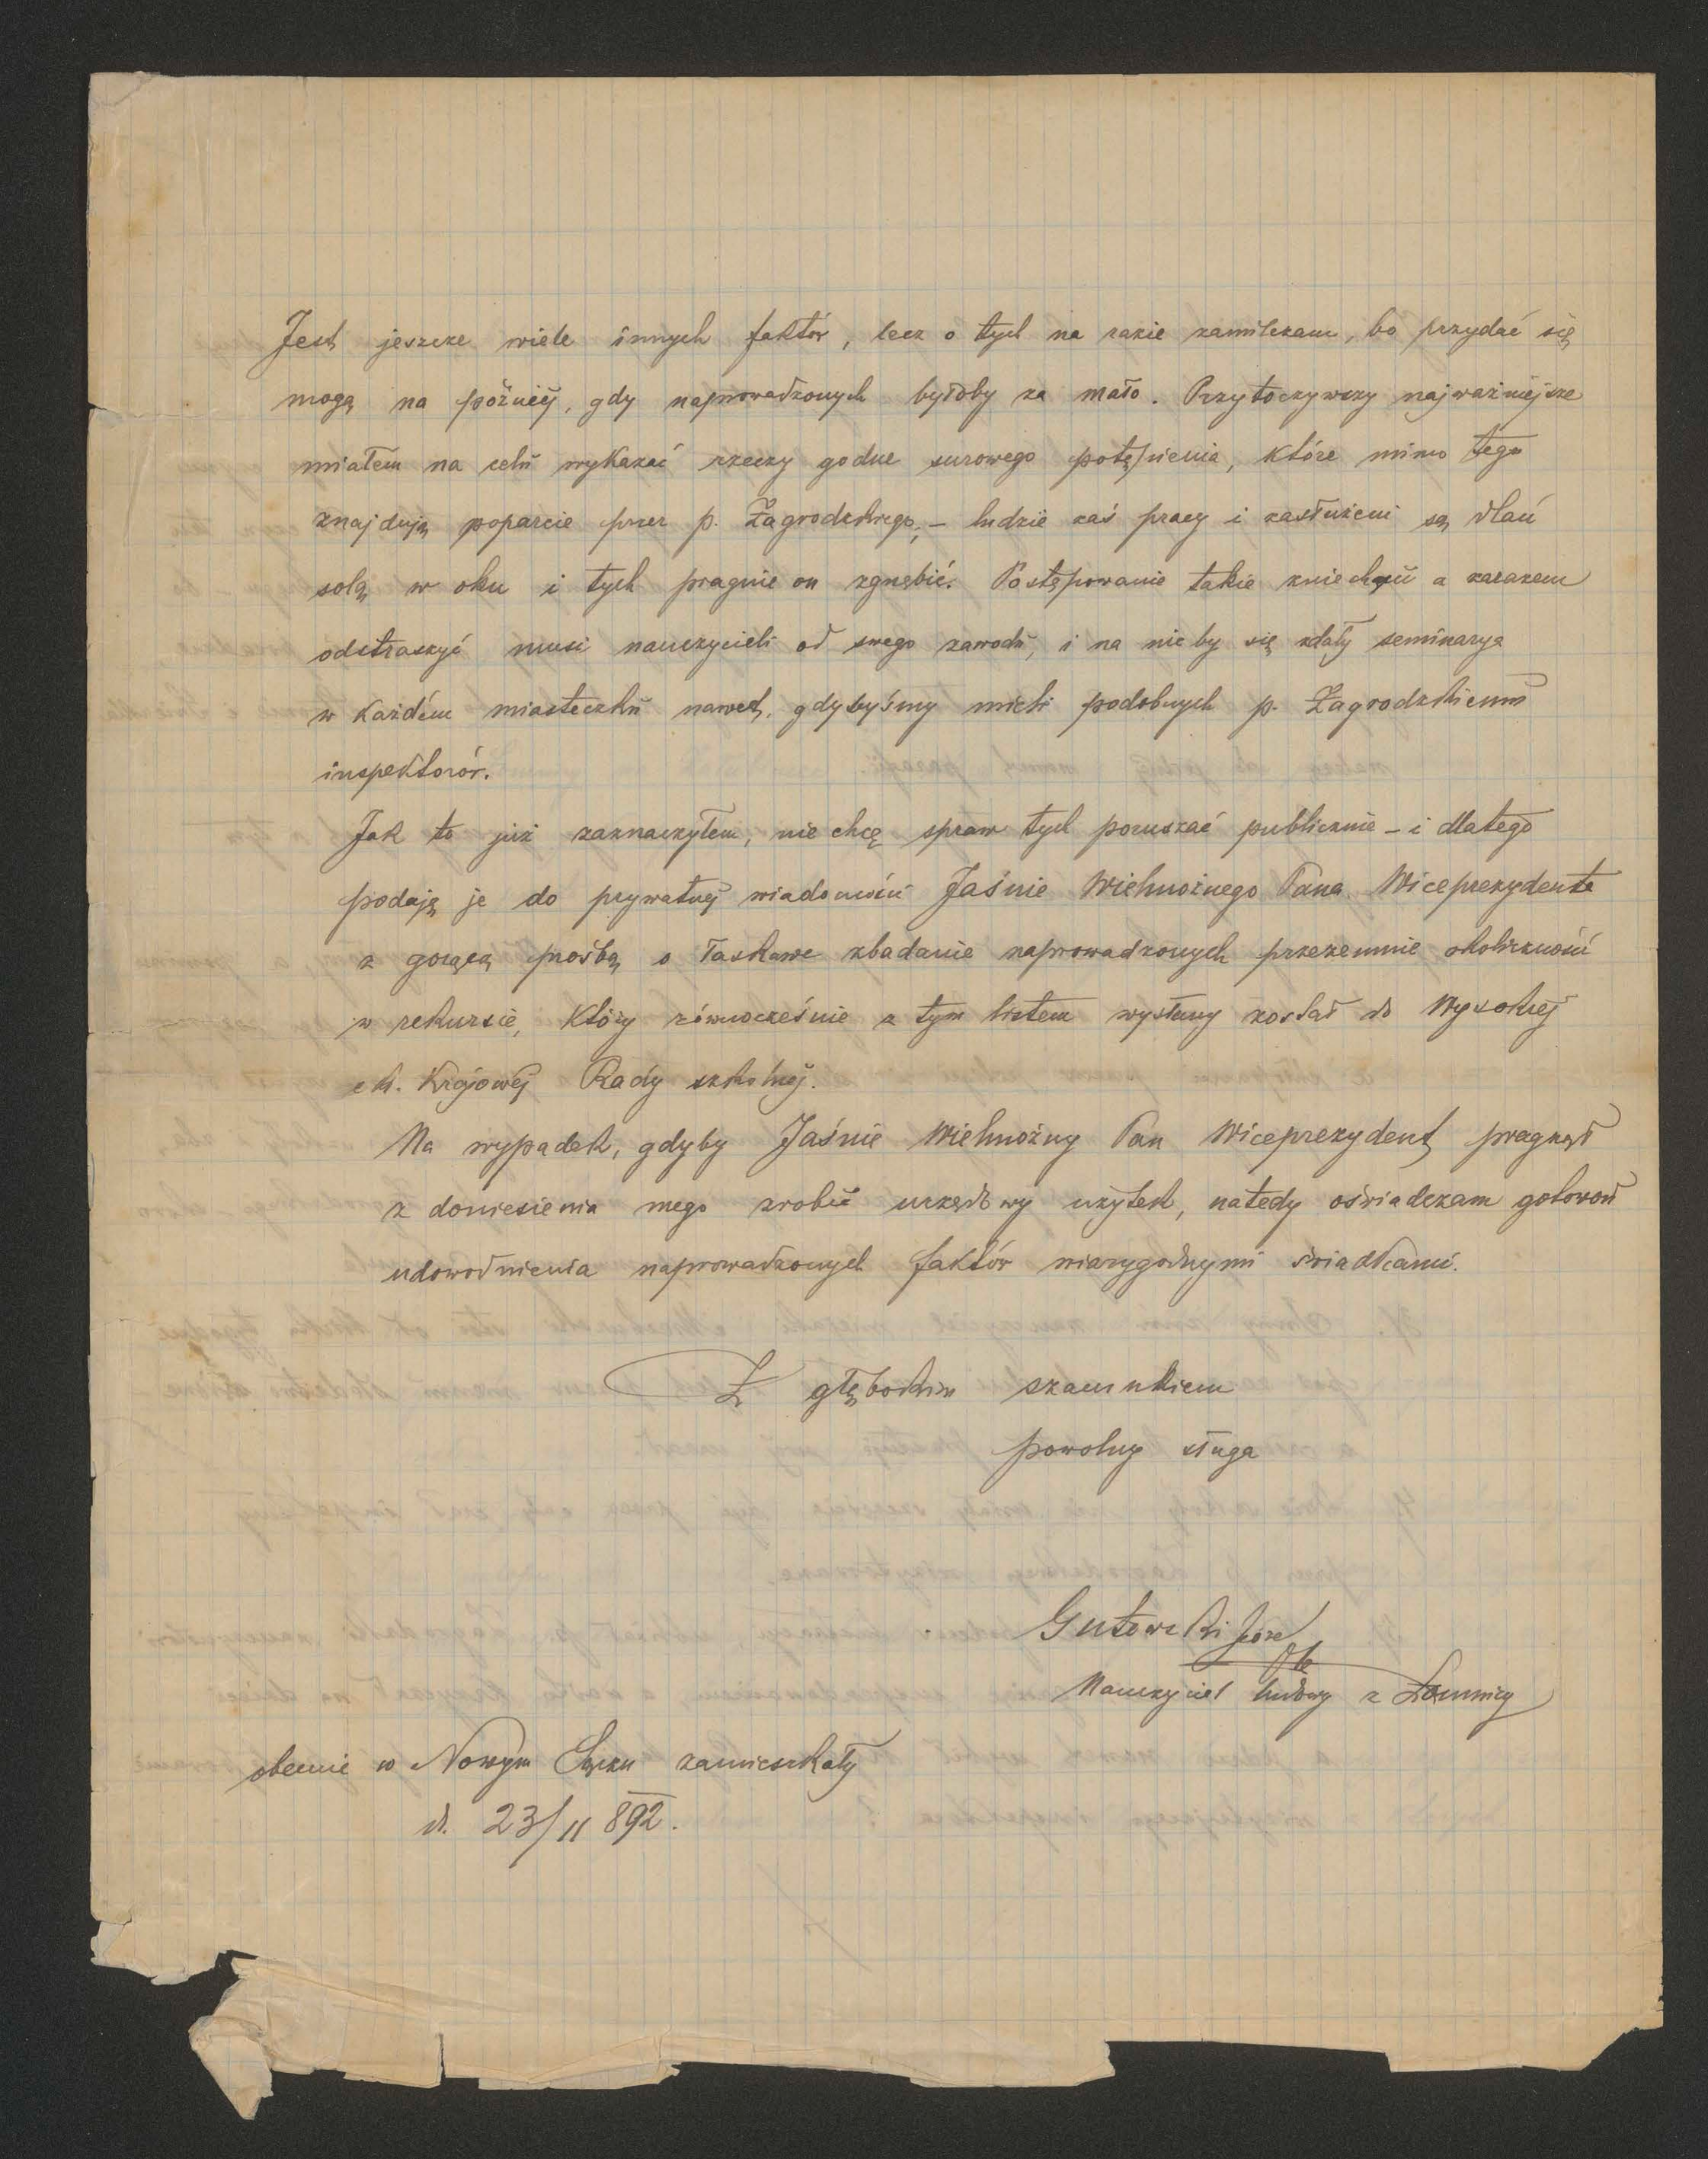 Jest jeszcze wiele innych faktów, lecz o tych na razie zamilczam, bo przydać się
mogą na później, gdy naprowadzonych byłoby za mało. Przytoczywszy najważniejsze
miałem na celu wykazać rzeczy godne surowego potępienia, które mimo tego
znajdują poparcie przez p. Zagrodzkiego, – ludzie zaś pracy i zasłużeni są dlań
solą w oku i tych pragnie on zgnębić. Postępowanie takie zniechęcić a zarazem
odstraszyć musi nauczycieli od swego zawodu, i na nic by się zdały seminarya
w każdém miasteczku nawet, gdybyśmy mieli podobnych p. Zagrodzkiemu
inspektorów.
Jak to już zaznaczyłem, nie chcę spraw tych poruszać publicznie – i dlatego
podaję je do prywatnej wiadomości Jaśnie Wielmożnego Pana Wiceprezydenta
z gorącą prośbą o łaskawe zbadanie naprowadzonych przezemnie okoliczności
w rekursie, który równocześnie z tym listem wysłany został do Wysokiej
c k. Krajowej Rady szkolnej.
Na wypadek, gdyby Jaśnie Wielmożny Pan Wiceprezydent pragnął
z doniesienia mego zrobić urzędowy użytek, natedy oświadczam gotowość
udowodnienia naprowadzonych faktów wiarygodnymi świadkami.
Z głębokim szacunkiem
powolny sługa
Gutowski Józef
Nauczyciel ludowy z Łomnicy
obecnie w Nowym Sączu zamieszkały
d. 23/11 892.